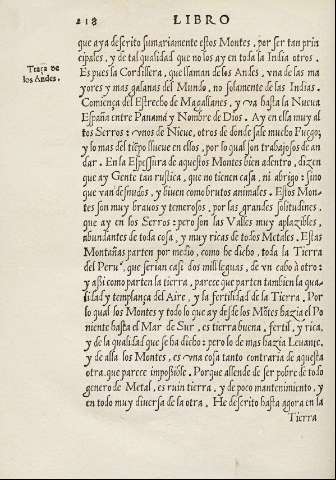 218 LIBRO
que aya descrito sumariamente estos Montes, por ser tan prin
cipales, y de tal qualidad que no los ay en toda la India otros.
Traça de
los Andes.
Es pues la Cordillera, que llaman de los Andes, vna de las ma
yores y mas galanas del Mundo, no solamente de las Indias.
Comiença del Estrecho de Magallanes, y va hasta la Nueva
España entre Panamá y Nombre de Dios. Ay en ella muy al
tos Serros: vnos de Nieve, otros de donde sale mucho Fuego;
y lo mas del tiẽpo llueve en ellos, por lo qual son trabajosos de an
dar. En la Espessura de aquestos Montes bien adentro, dizen
que ay Gente tan rustica, que no tienen casa, ni abrigo: sino
que van desnudos, y biven como brutos animales. Estos Mon
tes son muy bravos y temerosos, por las grandes solitudines,
que ay en los Serros: pero son las Valles muy aplazibles,
abundantes de toda cosa, y muy ricas de todos Metales. Estas
Montañas parten por medio, como he dicho, toda la Tierra
del Peru', que serian casi dos mil leguas, de vn cabo à otro:
y assi como parten la tierra, parece que parten tambien la qua
lidad y templança del Aire, y la fertilidad de la Tierra. Por
lo qual los Montes y todo lo que ay desde los Mõtes hazia el Po
niente hasta el Mar de Sur, es tierra buena, fertil, y rica,
y de la qualidad que se ha dicho: pero lo de mas hazia Levante,
y de alla los Montes, es vna cosa tanto contraria de aquesta
otra, que parece impossible. Porque allende de ser pobre de todo
genero de Metal, es ruin tierra, y de poco mantenimiento, y
en todo muy diversa de la otra. He descrito hasta agora en la
Tierra